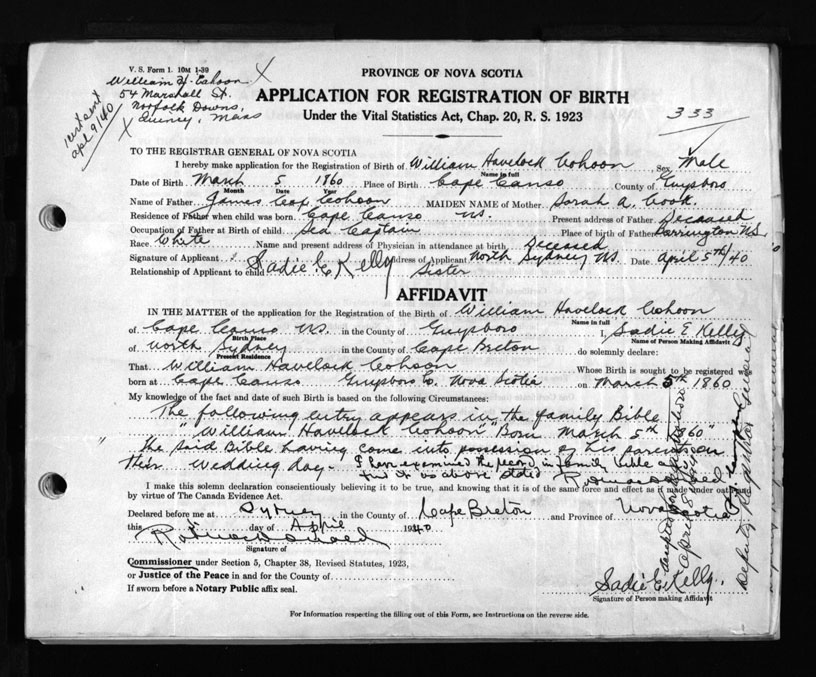 V. S. Form 1. 10M 1-39
William H. Cohoon X
54 Marshall St.
Norfolk Downs,
Quincy, Mass
X
cert sent
apl 9/40
PROVINCE OF NOVA SCOTIA
APPLICATION FOR REGISTRATION OF BIRTH
Under the Vital Statistics Act, Chap. 20, R. S. 1923
333
TO THE REGISTRAR GENERAL OF NOVA SCOTIA
I hereby make application for the Registration of Birth of William Havelock Cohoon Sex Male
Name in full
Date of Birth March 5 1860 Place of Birth Cape Canso County of Guysboro
Month Date Year
Name of Father James Cox Cohoon MAIDEN NAME of Mother Sarah A. Cook
Residence of Father when child was born Cape Canso N.S. Present address of Father Deceased
Occupation of Father at Birth of child Sea Captain Place of birth of Father Barrington N.S.
Race White Name and present address of Physician in attendance at birth Deceased
Signature of Applicant Sadie E Kelly Address of Applicant North Sydney N.S. Date April 5th/40
Relationship of Applicant to child Sister
AFFIDAVIT
IN THE MATTER of the application for the Registration of the Birth of William Havelock Cohoon
Name in full
of Cape Canso N.S. in the County of Guysboro I, Sadie E Kelly
Birth Place Name of Person Making Affidavit
of North Sydney in the County of Cape Breton do solemnly declare:
Present Residence
That William Havelock Cohoon Whose Birth is sought to be registered was
born at Cape Canso Guysboro Co. Nova Scotia on March 5 1860
My knowledge of the fact and date of such Birth is based on the following Circumstances:
The following entry appears in the family Bible
"William Havelock Cohoon" "Born March 5th 1860"
The said Bible having come into possession of his parents on
their wedding day. I have examined the record in family bible and
find it is as above stated
I make this solemn declaration conscientiously believing it to be true, and knowing that it is of the same force and effect as if made under oath and
by virtue of The Canada Evidence Act.
Declared before me at Sydney in the County of Cape Breton and Province of Nova Scotia
this day of April 1940
Signature of
Commissioner under Section 5, Chapter 38, Revised Statutes, 1923,
or Justice of the Peace in and for the County of
If sworn before a Notary Public affix seal.
Sadie E. Kelly.
Signature of Person making Affidavit
For Information respecting the filling out of this Form, see Instructions on the reverse side.
Deputy Registrar General